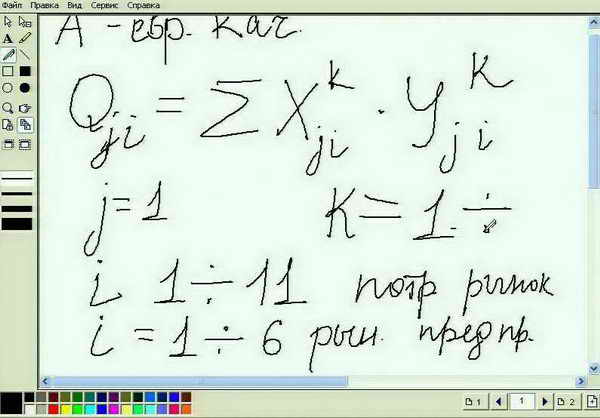 Файл Правка Вид Сервис Справка
A - евр. кач.
Q_{ji} = Σ X_{ji}^{k} · Y_{ji}^{K}
j = 1 K = 1 ÷
i 1 ÷ 11 потр рынок
i = 1 ÷ 6 рын. предпр.
1 1 2